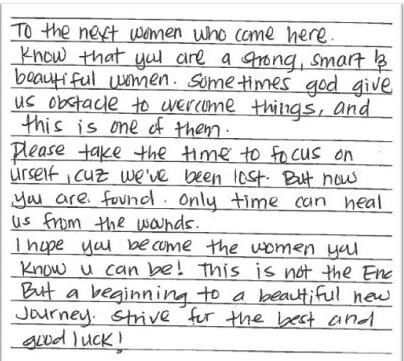 To the next women who come here.
Know that you are a strong, smart &
beautiful women. Sometimes god give
us obstacle to overcome things, and
this is one of them.
Please take the time to focus on
urself, cuz we've been lost. But now
you are found. Only time can heal
us from the wounds.
I hope you become the women you
know u can be! This is not the End
But a beginning to a beautiful new
Journey. Strive for the best and
good luck!